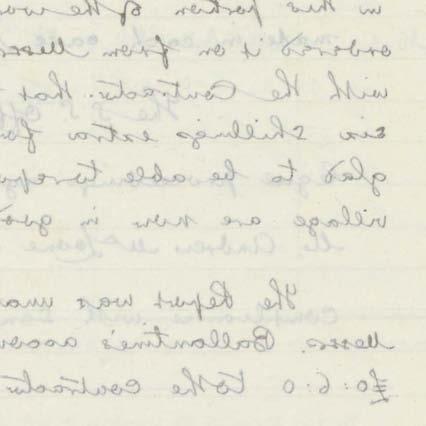 in this portion of the wor
ordered it on from Messrs
with the Contractor that
six shillings extra for
glad to be able to repo
village are now in good
The Report was unan
Messrs. Ballantine's accou
£0:6:0 to the contractor